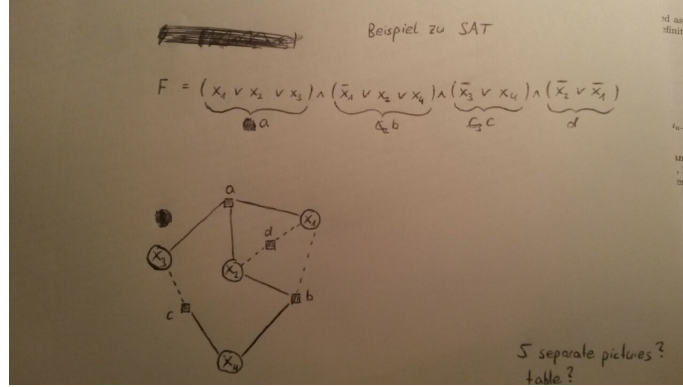 Beispiel zu SAT
F = (x₁ ∨ x₂ ∨ x₃) ∧ (x̄₁ ∨ x₂ ∨ x₄) ∧ (x̄₃ ∨ x₄) ∧ (x̄₂ ∨ x̄₁)
a b c d
a
x₁
d
x₃
x₂
b
c
x₄
5 separate pictures?
table?